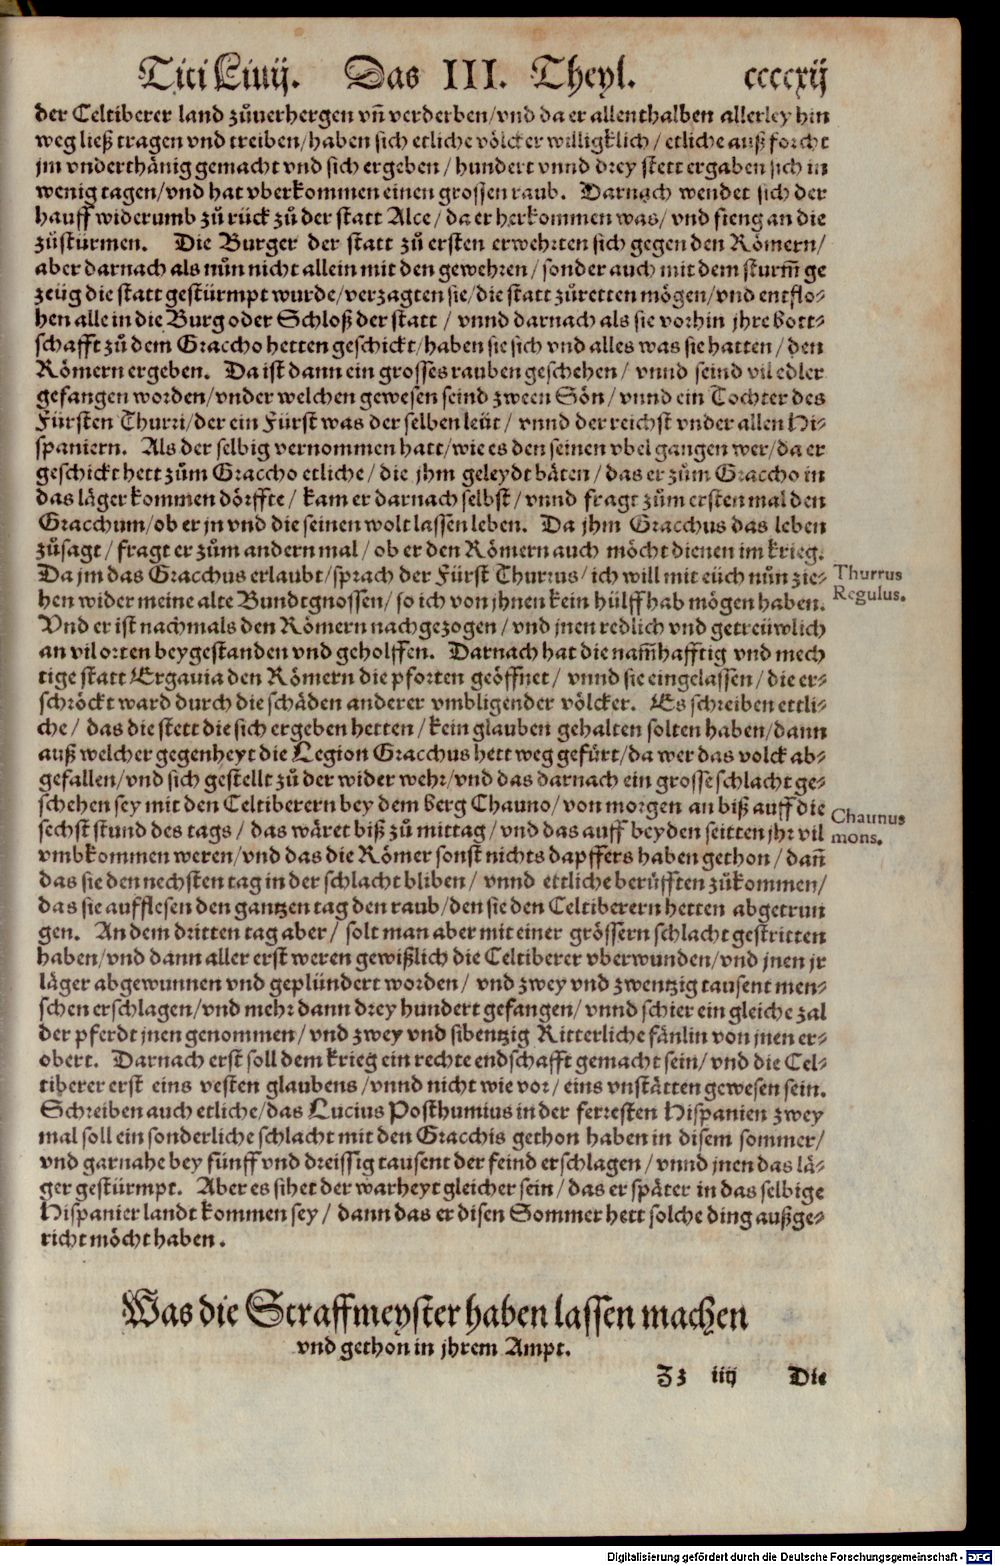 Titi Liuij. Das III. Theyl. ccccxij
der Celtiberer land zůuerhergen vñ verderben/vnd da er allenthalben allerley hin
weg ließ tragen vnd treiben/haben sich etliche völcker williglich/etliche auß forcht
jm vnderthänig gemacht vnd sich ergeben/hundert vnnd drey stett ergaben sich in
wenig tagen/vnd hat vberkommen einen grossen raub. Darnach wendet sich der
hauff widerumb zů rück zů der statt Alce/da er herkommen was/vnd fieng an die
zůstürmen. Die Burger der statt zů ersten erwehrten sich gegen den Römern/
aber darnach als nůn nicht allein mit den gewehren/sonder auch mit dem sturm̃ ge
zeüg die statt gestürmpt wurde/verzagten sie/die statt zůretten mögen/vnd entflo-
hen alle in die Burg oder Schloß der statt/vnnd darnach als sie vorhin jhre bott-
schafft zů dem Graccho hetten geschickt/haben sie sich vnd alles was sie hatten/den
Römern ergeben. Da ist dann ein grosses rauben geschehen/vnnd seind vil edler
gefangen worden/vnder welchen gewesen seind zween Sön/vnnd ein Tochter des
Fürsten Thurri/der ein Fürst was der selben leüt/vnnd der reichst vnder allen Hi-
spaniern. Als der selbig vernommen hatt/wie es den seinen vbel gangen wer/da er
geschickt hett zům Graccho etliche/die jhm geleydt bäten/das er zům Graccho in
das läger kommen dörffte/kam er darnach selbst/vnnd fragt zům ersten mal den
Gracchum/ob er jn vnd die seinen wolt lassen leben. Da jhm Gracchus das leben
zůsagt/fragt er zům andern mal/ob er den Römern auch möcht dienen im krieg.
Da jm das Gracchus erlaubt/sprach der Fürst Thurrus/ich will mit eüch nůn zie-
hen wider meine alte Bundtgnossen/so ich von jhnen kein hülff hab mögen haben.
Thurrus
Regulus.
Vnd er ist nachmals den Römern nachgezogen/vnd jnen redlich vnd getreüwlich
an vil orten beygestanden vnd geholffen. Darnach hat die nam̃hafftig vnd mech
tige statt Ergauia den Römern die pforten geöffnet/vnnd sie eingelassen/die er-
schröckt ward durch die schäden anderer vmbligender völcker. Es schreiben ettli-
che/das die stett die sich ergeben hetten/kein glauben gehalten solten haben/dann
auß welcher gegenheyt die Legion Gracchus hett weg gefürt/da wer das volck ab-
gefallen/vnd sich gestellt zů der wider wehr/vnd das darnach ein grosse schlacht ge-
schehen sey mit den Celtiberern bey dem berg Chauno/von morgen an biß auff die
sechst stund des tags/das wäret biß zů mittag/vnd das auff beyden seitten jhr vil
Chaunus
mons.
vmbkommen weren/vnd das die Römer sonst nichts dapffers haben gethon/dañ
das sie den nechsten tag in der schlacht bliben/vnnd ettliche berüfften zůkommen/
das sie aufflesen den gantzen tag den raub/den sie den Celtiberern hetten abgetrun
gen. An dem dritten tag aber/solt man aber mit einer grössern schlacht gestritten
haben/vnd dann aller erst weren gewißlich die Celtiberer vberwunden/vnd jnen jr
läger abgewunnen vnd geplündert worden/vnd zwey vnd zwentzig tausent men-
schen erschlagen/vnd mehr dann drey hundert gefangen/vnnd schier ein gleiche zal
der pferdt jnen genommen/vnd zwey vnd sibentzig Ritterliche fänlin von jnen er-
obert. Darnach erst soll dem krieg ein rechte endschafft gemacht sein/vnd die Cel-
tiberer erst eins vesten glaubens/vnnd nicht wie vor/eins vnstätten gewesen sein.
Schreiben auch etliche/das Lucius Posthumius in der ferresten Hispanien zwey
mal soll ein sonderliche schlacht mit den Gracchis gethon haben in disem sommer/
vnd garnahe bey fünff vnd dreissig tausent der feind erschlagen/vnnd jnen das lä-
ger gestürmpt. Aber es sihet der warheyt gleicher sein/das er später in das selbige
Hispanier landt kommen sey/dann das er disen Sommer hett solche ding außge-
richt möcht haben.
Was die Straffmeyster haben lassen machen
vnd gethon in jhrem Ampt.
Zz iiij Die
Digitalisierung gefördert durch die Deutsche Forschungsgemeinschaft - DFG